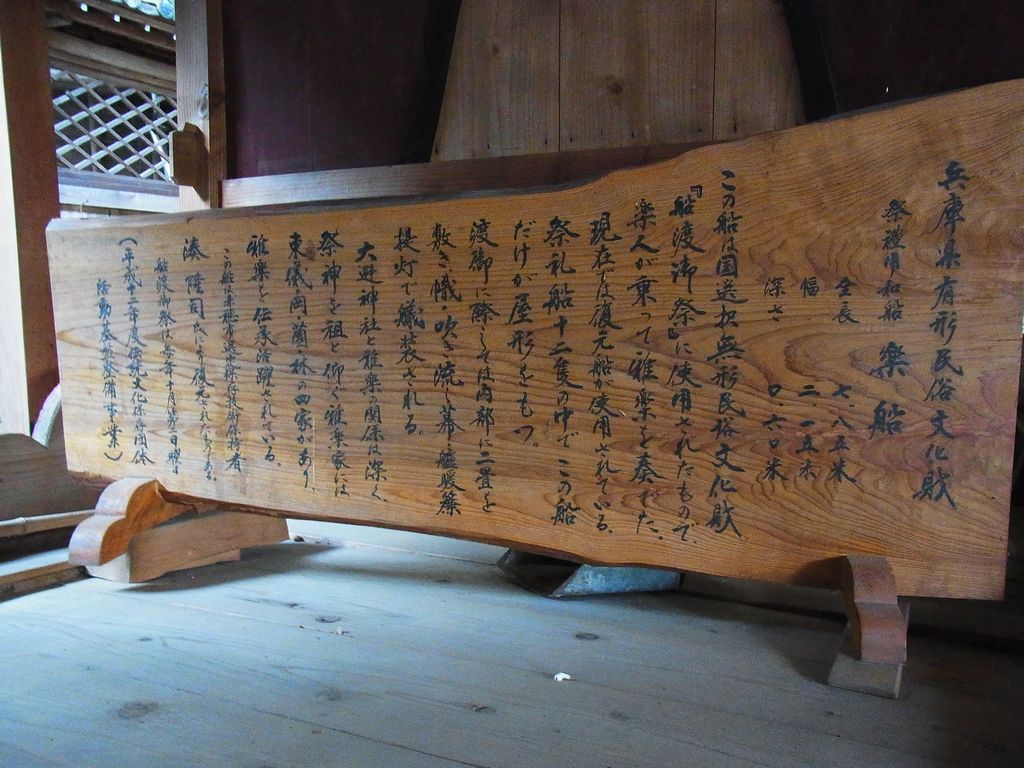 兵庫県有形民俗文化財
祭禮用和船 楽船
全長 七.八五米
幅 二.一五米
深さ 〇.六〇米
この船は国選択無形民俗文化財
『船渡御祭』に使用されたもので、
楽人が乗って雅楽を奏でた。
現在は復元船が使用されている。
祭礼船十二隻の中でこの船
だけが屋形をもつ。
渡御に際しては内部に二畳を
敷き、幟・吹き流し・幕・艫
提灯で艤装される。
大避神社と雅楽の関係は深く、
祭神を祖と仰ぐ雅楽家には
東儀 岡 薗 林の四家があり、
雅楽を伝承活躍されている。
この船は赤穂市選定保存技術保持者
湊 隆司氏により復元されたものである。
船渡御祭は毎年十月第二日曜日
(平成十二年度伝統文化保存団体
活動基盤整備事業)